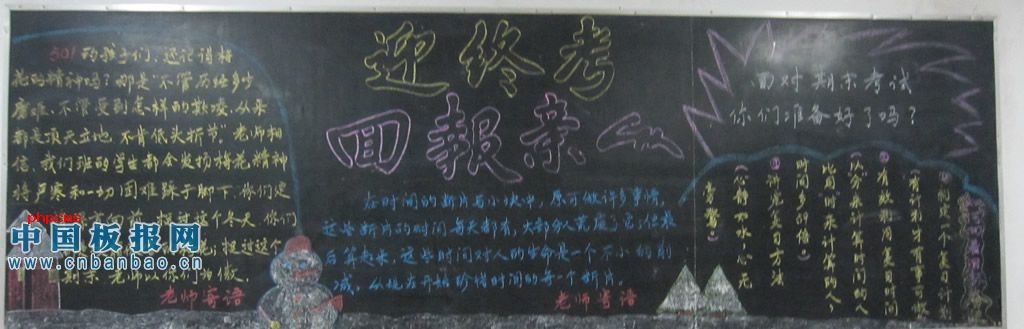 迎终考
回報亲人
501的孩子们,还记得梅
花的精神吗?那是"不管历经多少
磨难,不管受到怎样的欺凌,从来
都是顶天立地,不肯低头折节。"老师相
信,我们班的学生都会发扬梅花精神
将严寒和一切困难踩于脚下,你们定
这个冬天,你们
过这个
老师寄语
在时间的断片与小块中,原可做许多事情,
这些断片的时间每天都有,大部分人荒废了它,但最
后算起来,这些时间对人的生命是一个不小的削
减,从现在开始珍惜时间的每一个断片。
老师寄语
面对期末考试
你们准备好了吗?
①制定一个复习计划
(有计划才有事可做)
②有效利用复习时间
(以分来计算时间的人
比用"时"来计算的人,
时间多59倍)
③讲究复习方法
(心静如水,心无
旁骛)
phpcms
中国板报网
www.cnbanbao.cn